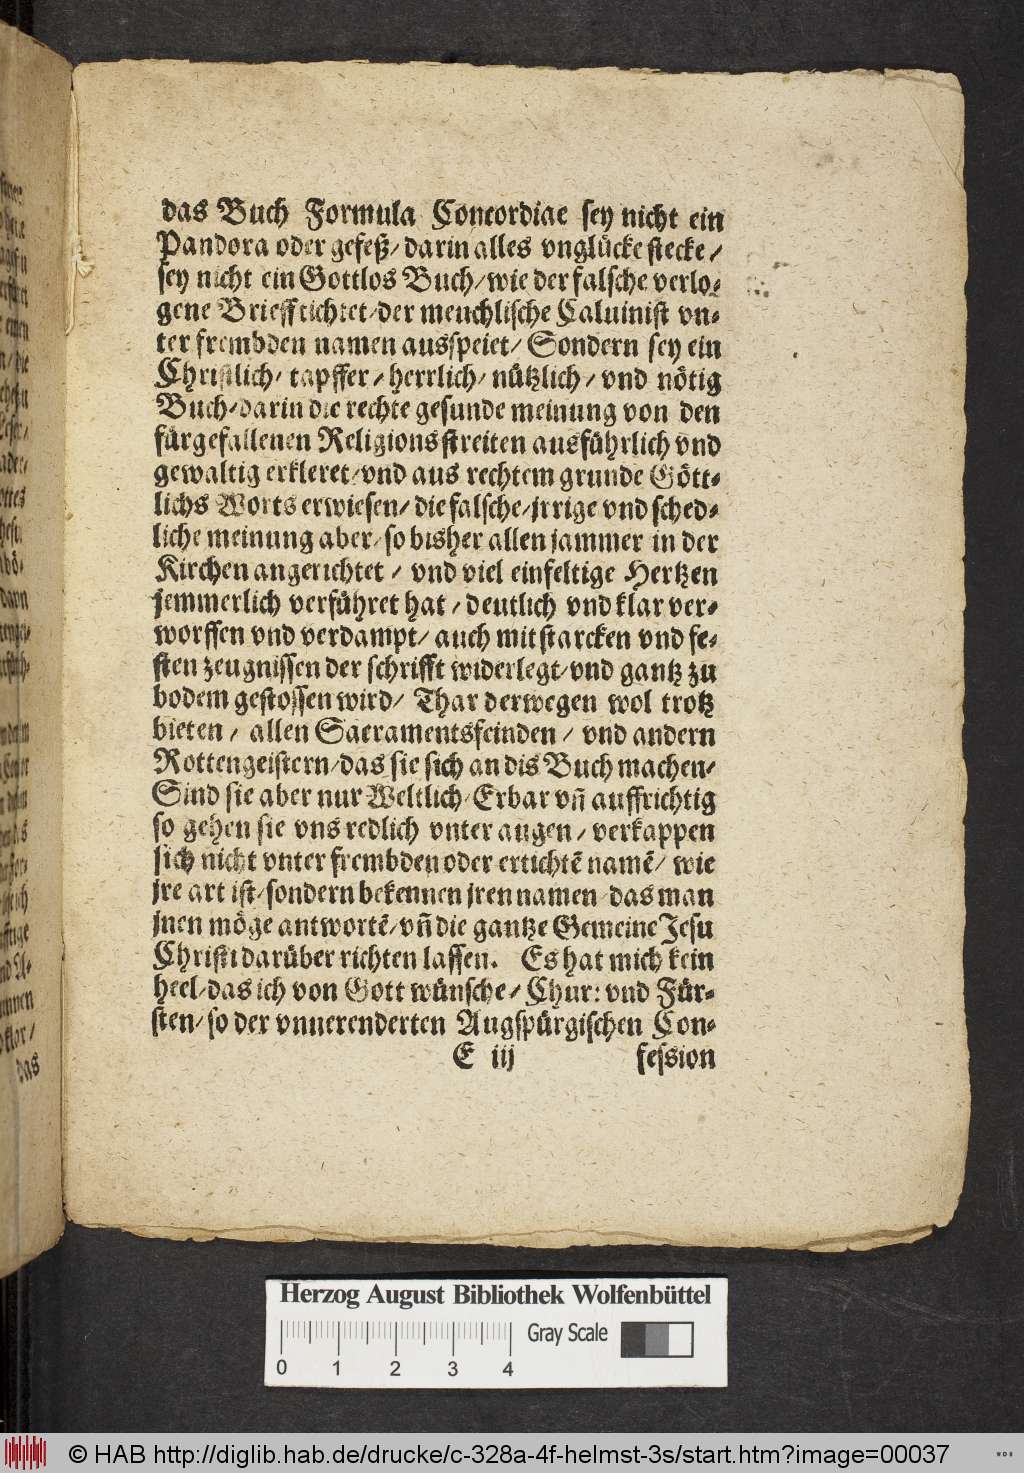 das Buch Formula Concordiae sey nicht ein
Pandora oder gefeß/ darin alles vnglücke stecke/
sey nicht ein Gottlos Buch/ wie der falsche verlo⸗
gene Brieff tichtet/ der meuchlische Caluinist vn⸗
ter frembden namen ausspeiet/ Sondern sey ein
Christlich/ tapffer/ herrlich/ nützlich/ vnd nötig
Buch/ darin die rechte gesunde meinung von den
fürgefallenen Religions streiten ausführlich vnd
gewaltig erkleret/ vnd aus rechtem grunde Gött⸗
lichs Worts erwiesen/ die falsche/ jrrige vnd sched⸗
liche meinung aber/ so bisher allen jammer in der
Kirchen angerichtet/ vnd viel einfeltige Hertzen
jemmerlich verführet hat/ deutlich vnd klar ver⸗
worffen vnd verdampt/ auch mit starcken vnd fe⸗
sten zeugnissen der schrifft widerlegt/ vnd gantz zu
bodem gestossen wird/ Thar derwegen wol trotz
bieten/ allen Sacramentsfeinden/ vnd andern
Rottengeistern/ das sie sich an dis Buch machen/
Sind sie aber nur Weltlich/ Erbar vñ auffrichtig
so gehen sie vns redlich vnter augen/ verkappen
sich nicht vnter frembden oder ertichtē namē/ wie
jre art ist/ sondern bekennen jren namen/ das man
jnen möge antwortē/ vñ die gantze Gemeine Jesu
Christi darüber richten lassen. Es hat mich kein
heel/ das ich von Gott wünsche/ Chur: vnd Für⸗
sten/ so der vnuerenderten Augspürgischen Con⸗
E iij fession
das
Herzog August Bibliothek Wolfenbüttel
Gray Scale
0 1 2 3 4
© HAB http://diglib.hab.de/drucke/c-328a-4f-helmst-3s/start.htm?image=00037